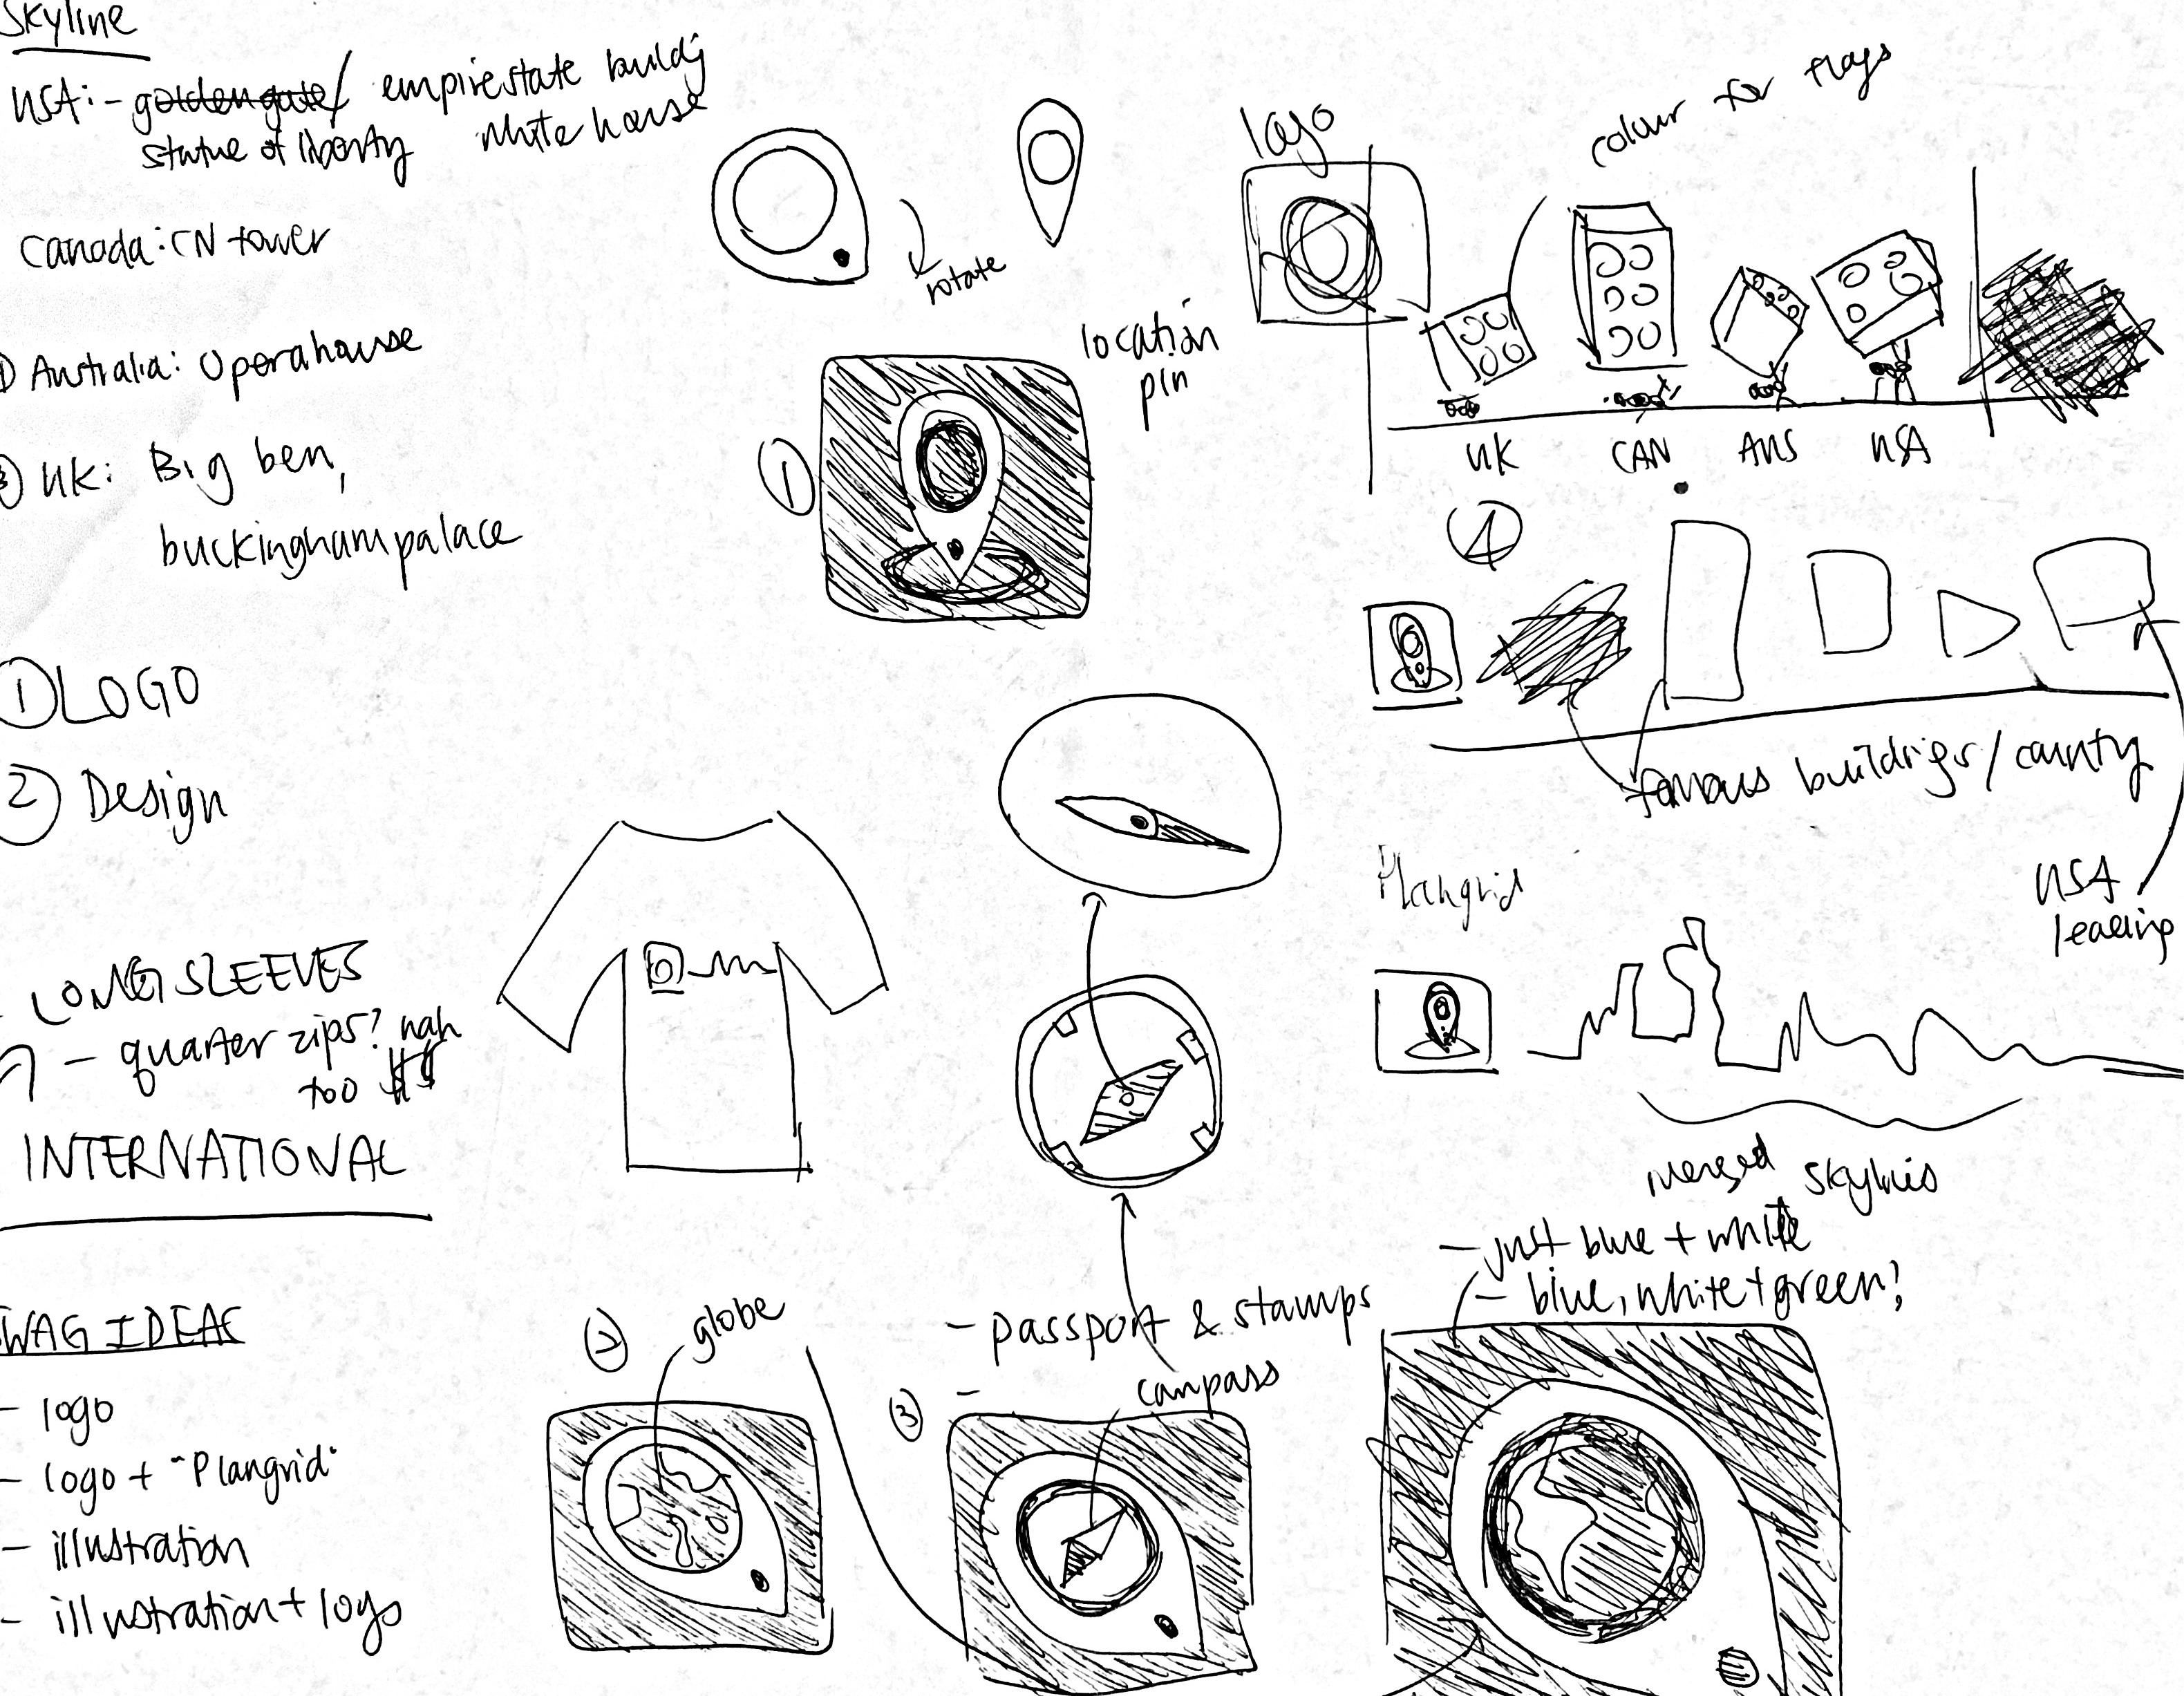 Skyline
USA: - goldengate / empirestate buildg
statue of liberty white house
Canada: CN tower
Australia: Operahouse
UK: Big ben,
buckinghampalace
① LOGO
② Design
LONG SLEEVES
- quarter zips? nah
too $$
INTERNATIONAL
SWAG IDEAS
- logo
- logo + "Plangrid"
- illustration
- illustration + logo
rotate
location
pin
①
② globe
- passport & stamps
-
③ compass
logo
colour for flags
UK CAN AUS USA
④
famous buildings / country
USA
leading
Plangrid
merged skylines
- just blue + white
- blue, white + green?